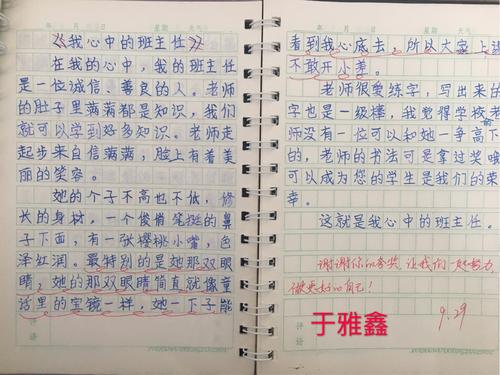 《我心中的班主任》
在我的心中，我的班主任
是一位诚信、善良的人。老师
的肚子里满满都是知识，我们
就可以学到好多知识。老师走
起步来自信满满，脸上有着美
丽的笑容。
她的个子不高也不低，修
长的身材，一个俊俏笔挺的鼻
子下面，有一张樱桃小嘴，色
泽红润。最特别的是她那双眼
睛，她的那双眼睛简直就像童
话里的宝镜一样，她一下子能
评语
看到我心底去，所以大家上课
不敢开小差。
老师很爱练字，写出来的
字也是一级棒，我觉得学校老
师没有一位可以和她一争高下
的，老师的书法可是拿过奖哦
可以成为您的学生是我们的荣
幸。
这就是我心中的班主任。
谢谢你的夸奖，让我们一起努力
做更好的自己！
9.29
于雅鑫
评语